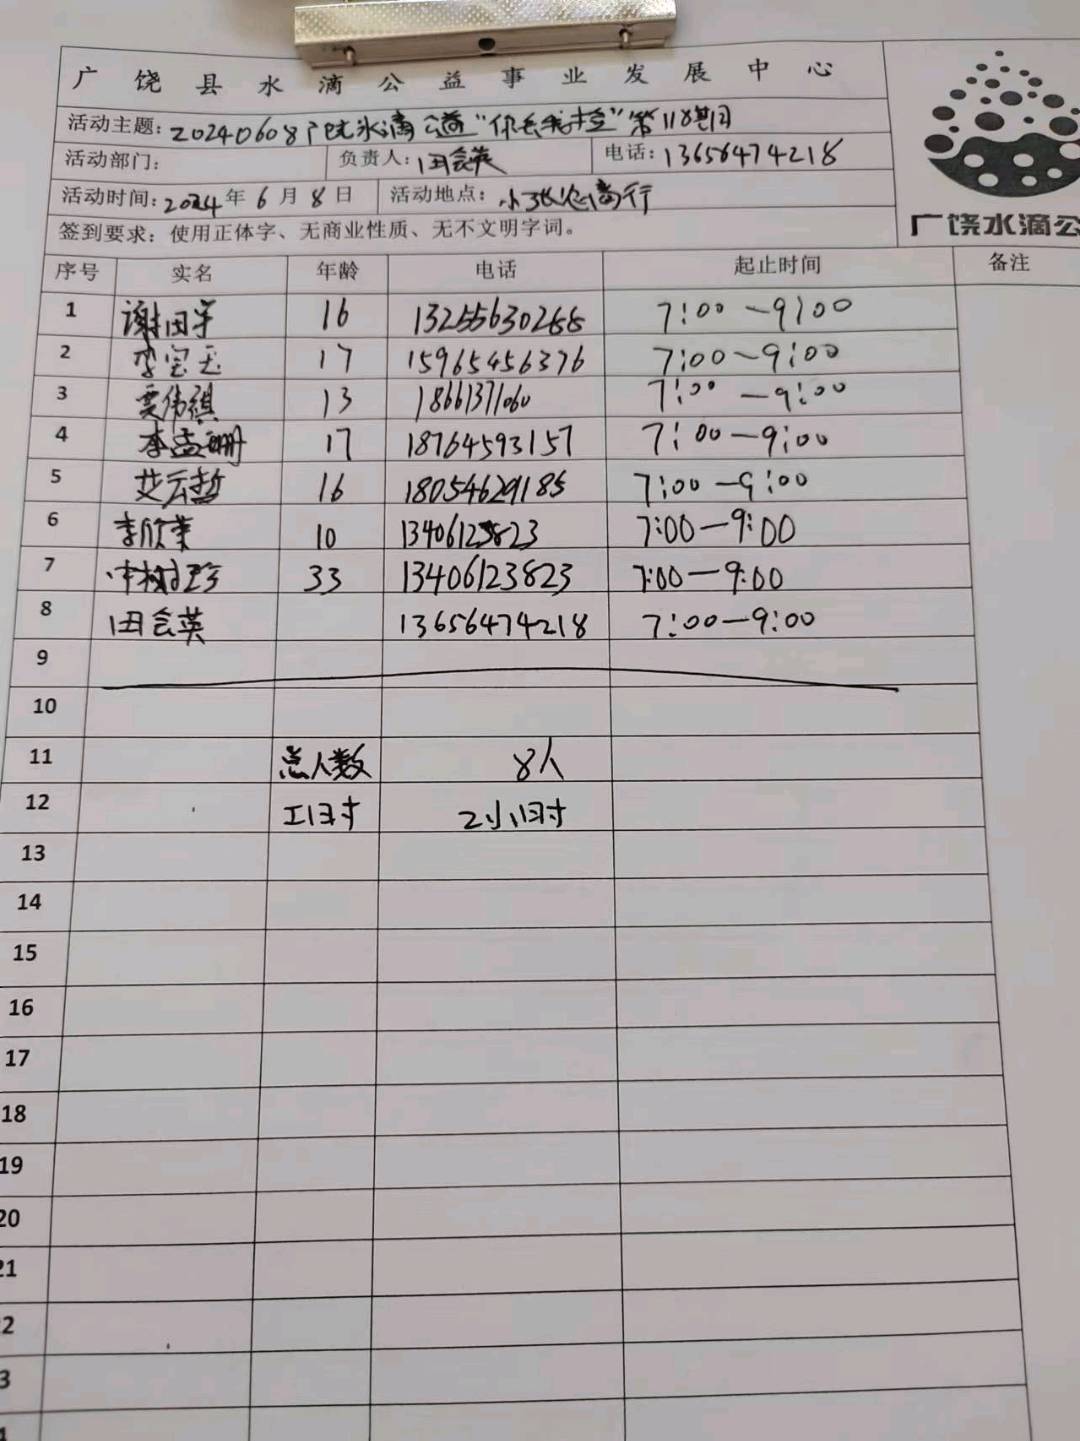 广饶县水滴公益事业发展中心
活动主题: 20240608广饶水滴公益"你丢我捡"第118期
活动部门: 负责人: 田会英 电话: 13656474218
活动时间: 2024年6月8日 活动地点: 商行
签到要求: 使用正体字、无商业性质、无不文明字词。
广饶水滴公
序号 实名 年龄 电话 起止时间 备注
1 16 13255630288 7:00—9:00
2 李宝玉 17 15965456376 7:00~9:00
3 13 18661371060 7:00—9:00
4 李孟珊 17 18764593157 7:00—9:00
5 艾云哲 16 18054629185 7:00—9:00
6 李欣荣 10 13406123823 7:00—9:00
7 33 13406123823 7:00—9:00
8 田会英 13656474218 7:00—9:00
9
10
11 总人数 8人
12 工时 2小时
13
14
15
16
17
18
19
20
21
2
3